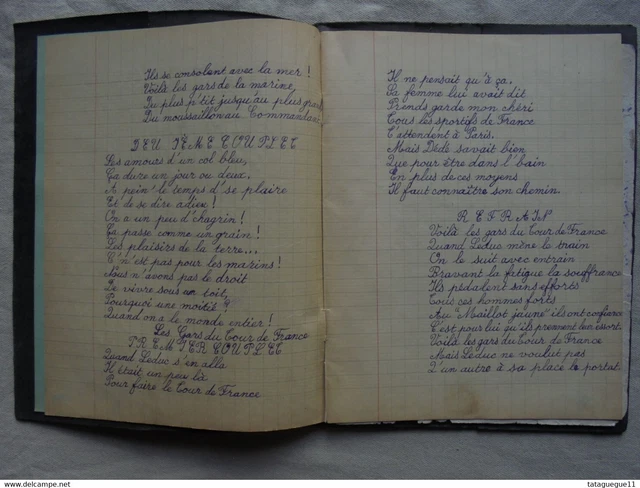 Ils se consolent avec la mer !
Voilà les gars de la marine,
Du plus p'tit jusqu'au plus grand
Du moussaillon au Commandant
DEUXIÈME COUPLET
Les amours d'un col bleu,
Ça dure un jour ou deux,
A pein' le temps d'se plaire
Et d'se dire adieu !
On a un peu d'chagrin !
Ça passe comme un grain !
Les plaisirs de la terre...
C'n'est pas pour les marins !
Nous n'avons pas le droit
De vivre sous un toit,
Pourquoi une moitié ?
Quand on a le monde entier !
Les Gars du Tour de France
PREMIER COUPLET
Quand Leduc s'en alla
Il était un peu là
Pour faire le Tour de France
Il ne pensait qu'à ça,
Sa femme lui avait dit
Prends garde mon chéri
Tous les sportifs de France
T'attendent à Paris,
Mais Dédé savait bien
Que pour être dans l'bain
En plus de ces moyens
Il faut connaître son chemin.
REFRAIN
Voilà les gars du Tour de France
Quand Leduc mène le train
On le suit avec entrain
Bravant la fatigue la souffrance
Ils pédalent sans efforts
Tous ces hommes forts
Au "Maillot jaune" ils ont confiance
C'est pour lui qu'ils prennent l'en essort.
Voilà les gars du Tour de France
Mais Leduc ne voulut pas
Qu'un autre à sa place le portat
www.delcampe.net
tataguegue11